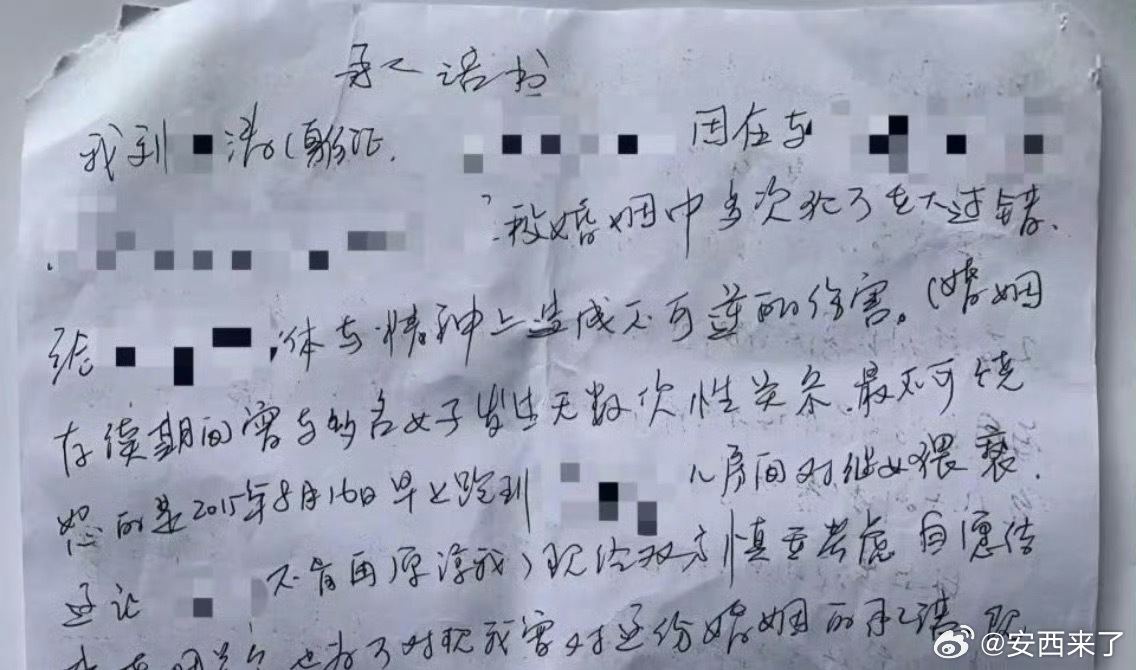 承诺书
我到 因在与
段婚姻中多次犯了重大过错.
给 体与精神上造成不可逆的伤害。(婚姻
存续期间曾与多名女子发生无数次性关系.最不可饶
恕的是2015年8月16日早上跑到 儿房间对继女猥亵.
这让 不肯再原谅我)现经双方慎重考虑自愿结
为了对现我曾对这份婚姻的承诺
@安西来了